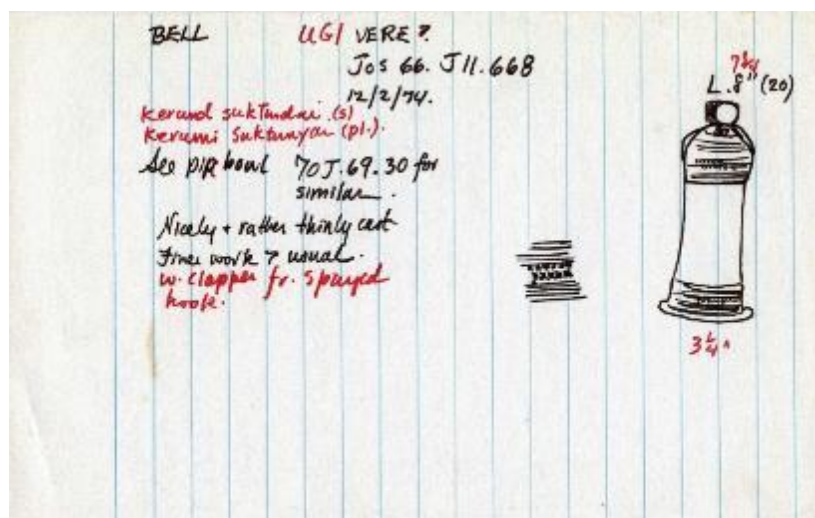 BELL UGI VERE ?
Jos 66. J11.668
12/2/74.
(s)
Kerumi (pl.).
See pipe bowl 70J.69.30 for
similar.
Nicely + rather thinly cast
Finer work > usual.
w. clapper fr. S
hook.
7 3/4
L. 8" (20)
3 1/4"